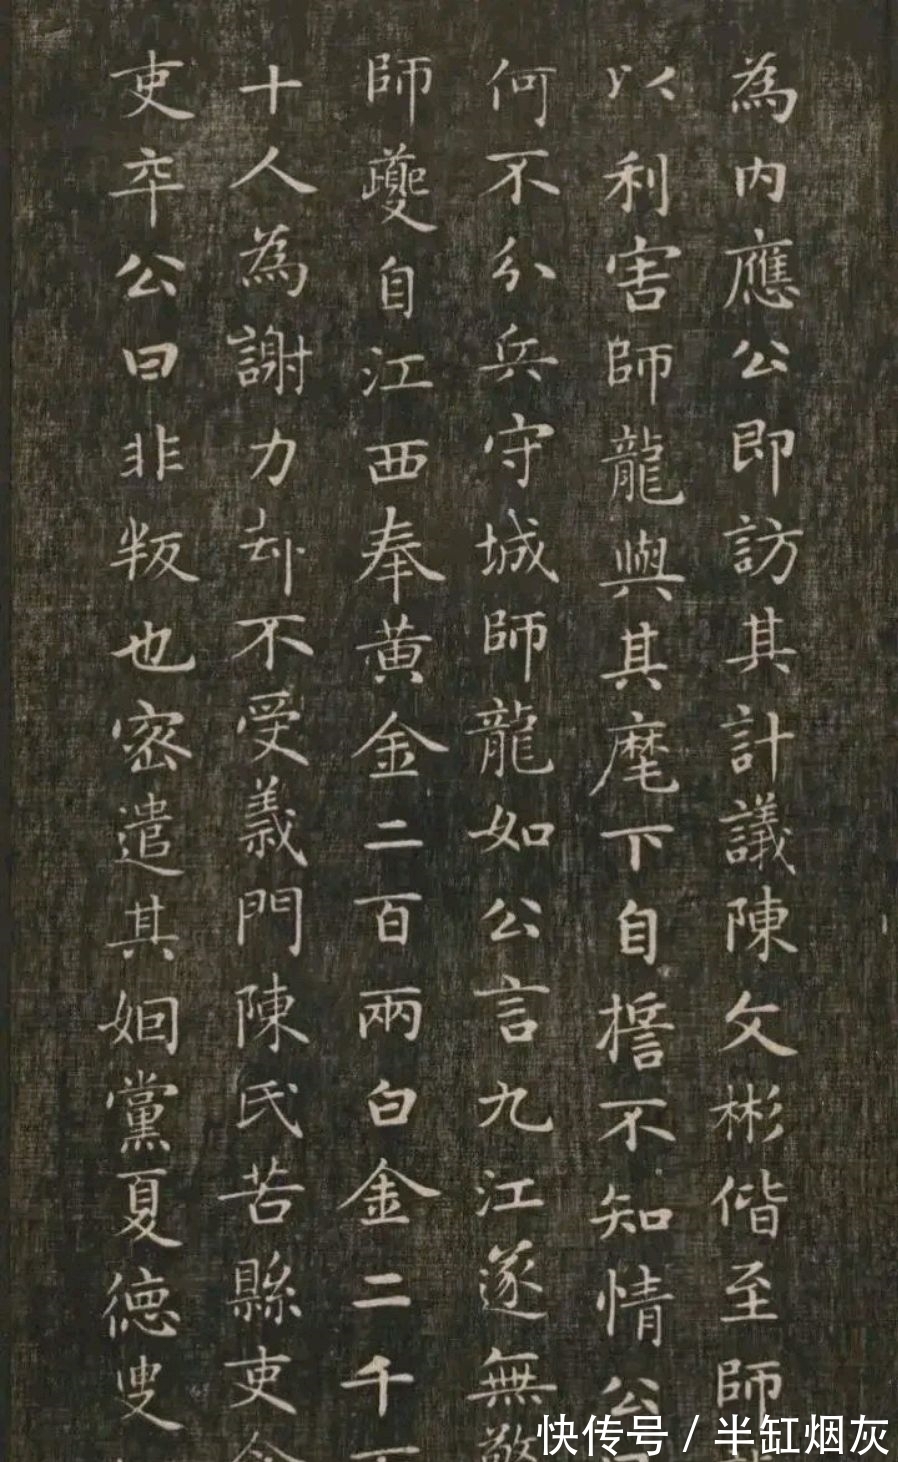 為內應公即訪其計議陳文彬偕至師
以利害師龍與其麾下自擔不知情公
何不分兵守城師龍如公言九江遂無
師夔自江西奉黃金二百兩白金二千
十人為謝力却不受義門陳氏苦縣吏
吏卒公曰非叛也密遣其姻黨夏德叟
快传号 / 半缸烟灰